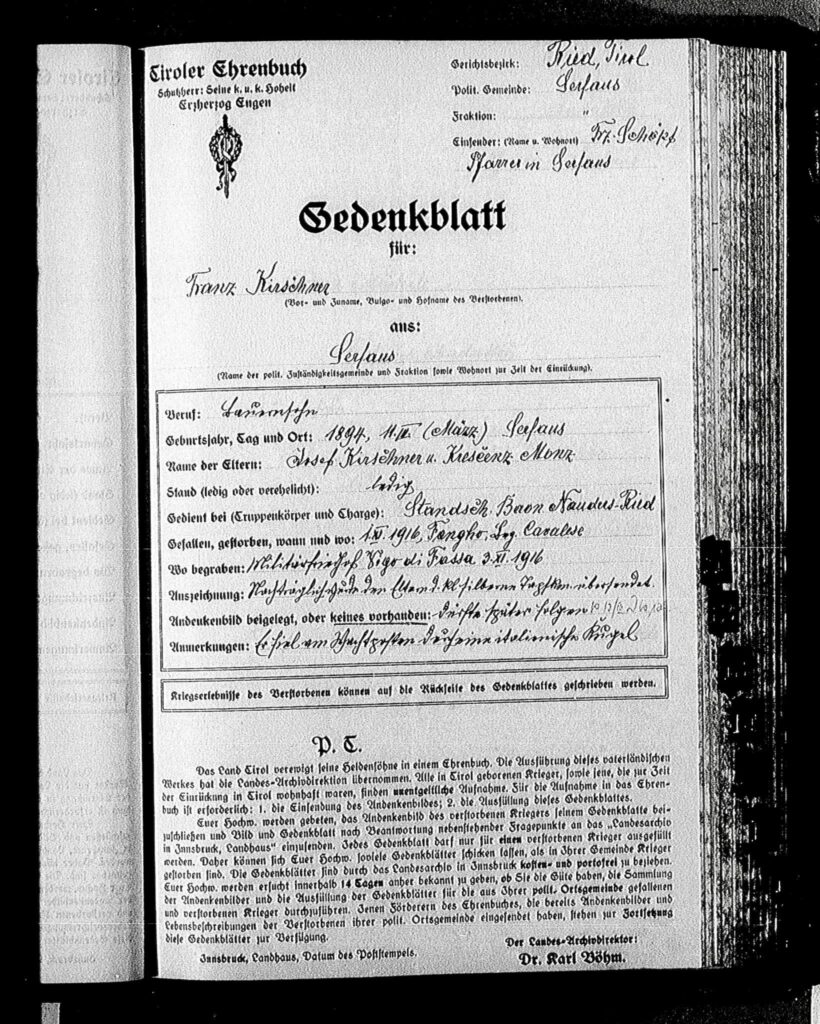 Tiroler Ehrenbuch
Schutzherr: Seine k. u. k. Hoheit
Erzherzog Eugen
Gerichtsbezirk: Ried, Tirol
Polit. Gemeinde: Serfaus
Fraktion: "
Einsender: (Name u. Wohnort) Frz. Schöpf
Pfarrer in Serfaus
Gedenkblatt
für:
Franz Kirschner
(Vor- und Zuname, Vulgo- und Hofname des Verstorbenen).
aus:
Serfaus
(Name der polit. Zuständigkeitsgemeinde und Fraktion sowie Wohnort zur Zeit der Einrückung).
Beruf: Bauernsohn
Geburtsjahr, Tag und Ort: 1894, 11. III. (März) Serfaus
Name der Eltern: Josef Kirschner u. Kreszenz Monz
Stand (ledig oder verehelicht): ledig
Gedient bei (Truppenkörper und Charge): Standsch. Baon Nauders-Ried
Gefallen, gestorben, wann und wo: 1916, Cavalese
Wo begraben: Militärfriedhof Vigo di Fassa 3. XI. 1916
Auszeichnung: Nachträglich wurde den Eltern d. kl. silberne Tapfkm. übersendet.
Andenkenbild beigelegt, oder keines vorhanden: dürfte später folgen
Anmerkungen: Er fiel am Wachtposten durch eine italienische Kugel
Kriegserlebnisse des Verstorbenen können auf die Rückseite des Gedenkblattes geschrieben werden.
P. T.
Das Land Tirol verewigt seine Heldensöhne in einem Ehrenbuch. Die Ausführung dieses vaterländischen
Werkes hat die Landes-Archivdirektion übernommen. Alle in Tirol geborenen Krieger, sowie jene, die zur Zeit
der Einrückung in Tirol wohnhaft waren, finden unentgeltliche Aufnahme. Für die Aufnahme in das Ehren-
buch ist erforderlich: 1. die Einsendung des Andenkenbildes; 2. die Ausfüllung dieses Gedenkblattes.
Euer Hochw. werden gebeten, das Andenkenbild des verstorbenen Kriegers seinem Gedenkblatte bei-
zuschließen und Bild und Gedenkblatt nach Beantwortung nebenstehender Fragepunkte an das „Landesarchiv
in Innsbruck, Landhaus" einzusenden. Jedes Gedenkblatt darf nur für einen verstorbenen Krieger ausgefüllt
werden. Daher können sich Euer Hochw. soviele Gedenkblätter schicken lassen, als in Ihrer Gemeinde Krieger
gestorben sind. Die Gedenkblätter sind durch das Landesarchiv in Innsbruck kosten- und portofrei zu beziehen.
Euer Hochw. werden ersucht innerhalb 14 Tagen anher bekannt zu geben, ob Sie die Güte haben, die Sammlung
der Andenkenbilder und die Ausfüllung der Gedenkblätter für die aus Ihrer polit. Ortsgemeinde gefallenen
und verstorbenen Krieger durchzuführen. Jenen Förderern des Ehrenbuches, die bereits Andenkenbilder und
Lebensbeschreibungen der Verstorbenen ihrer polit. Ortsgemeinde eingesendet haben, stehen zur Fortsetzung
diese Gedenkblätter zur Verfügung.
Innsbruck, Landhaus, Datum des Poststempels.
Der Landes-Archivdirektor:
Dr. Karl Böhm.